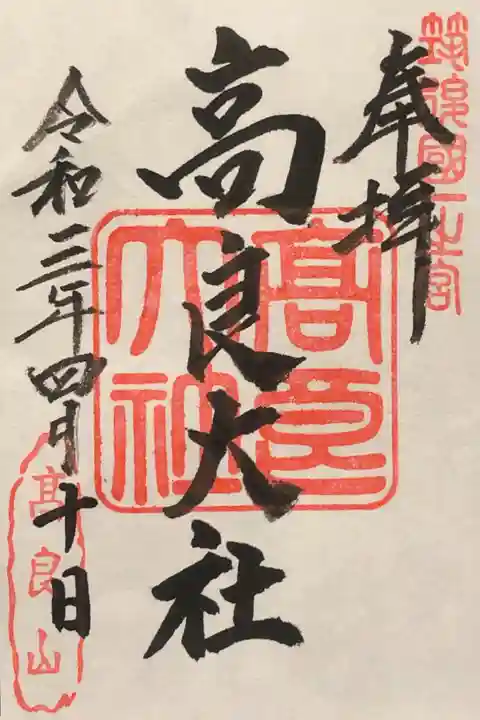 筑後國一之宮
奉拝
高良大社
高良大社
令和三年四月十日
高良山